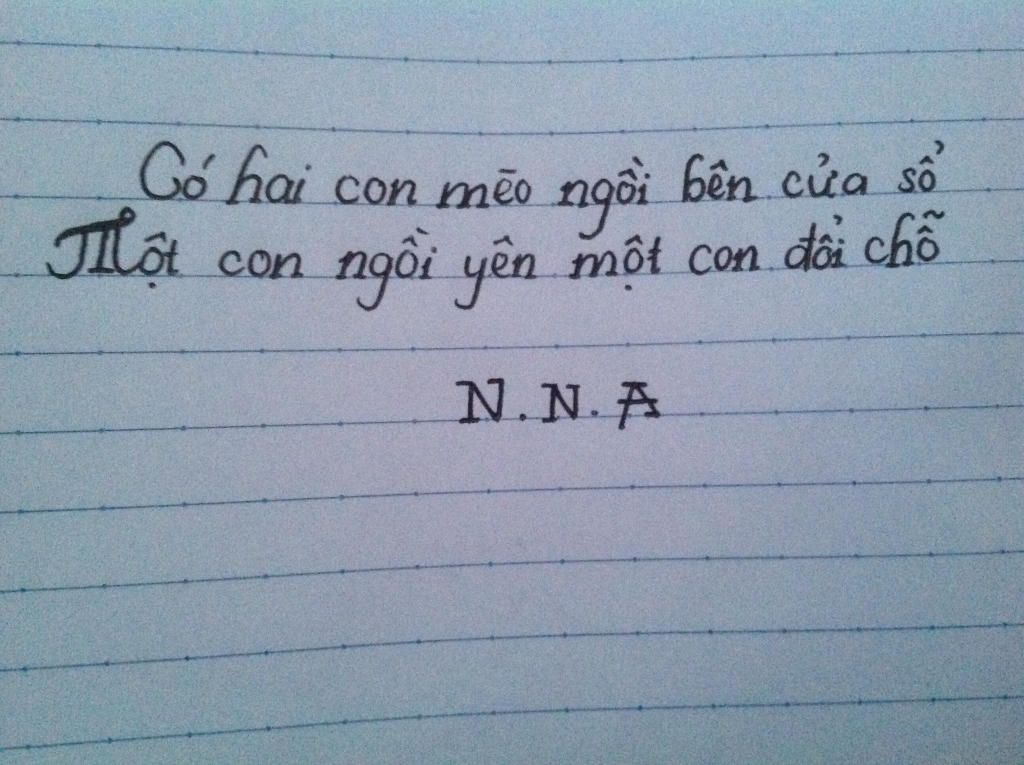 Có hai con mèo ngồi bên cửa sổ
Một con ngồi yên một con đổi chỗ
N.N.A